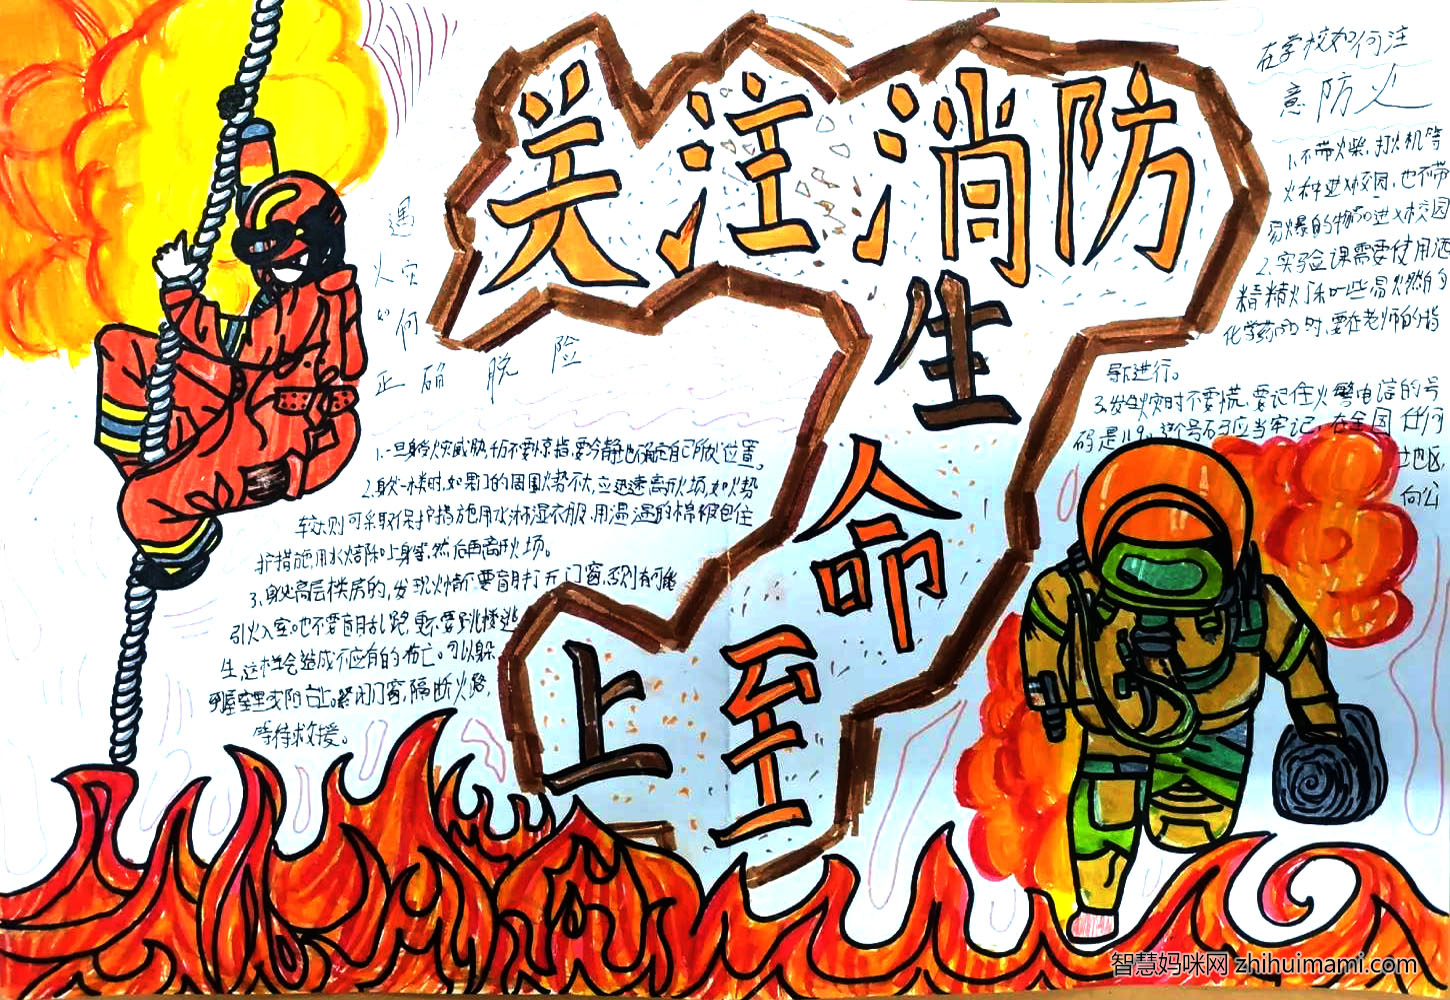 关注消防
生
命
至
上
遇
火灾
如何
正确脱险
1.一旦身受火灾威胁,切不要惊慌,要冷静地确定自己所处位置。
2.身处一楼时,如果门的周围火势不大,应迅速离开火场,如火势
较大则可采取保护措施用水淋湿衣服,用温湿的棉被包住
护措施,用水
然后再离开火场。
3.身处高层楼房的,发现火情不要盲目打开门窗,否则有可能
引火入室。也不要盲目乱跑,更不要跳楼逃
生,这样会造成不应有的伤亡。可以躲
到屋室里或阳台上。紧闭门窗,隔断火路,
等待救援。
在学校如何注
意防火
1.不带火柴、打火机等
火种进入校园,也不带
易爆的物品进入校园
2.实验课需要使用酒
精精灯和一些易燃的
化学药品时,要在老师的指
导下进行。
3.发生火灾时不要慌,要记住火警电话的号
码是119,这个号码应当牢记,在全国任何
地区,
向公
智慧妈咪网 zhihuimami.com